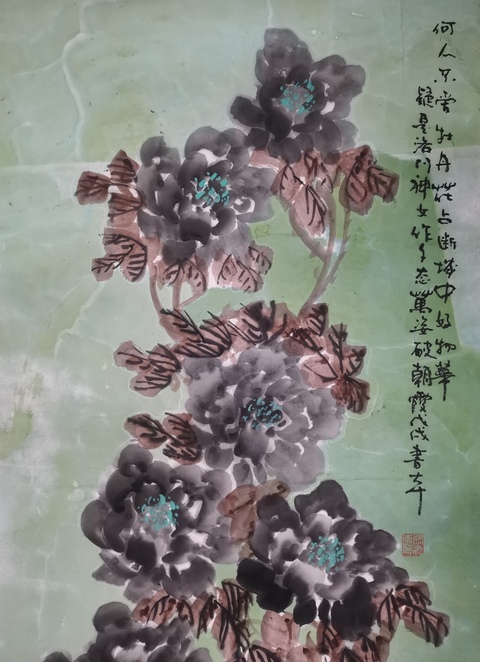 何人不爱牡丹花占断城中好物華
疑是洛川神女作千态萬姿破朝霞戊戌書